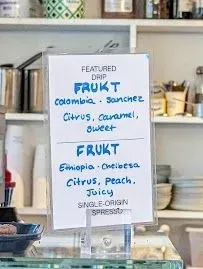 FEATURED
DRIP
FRUKT
Colombia · Sanchez
Citrus, Caramel,
Sweet
FRUKT
Ethiopia · Chelbesa
Citrus, Peach,
Juicy
SINGLE-ORIGIN
ESPRESSO